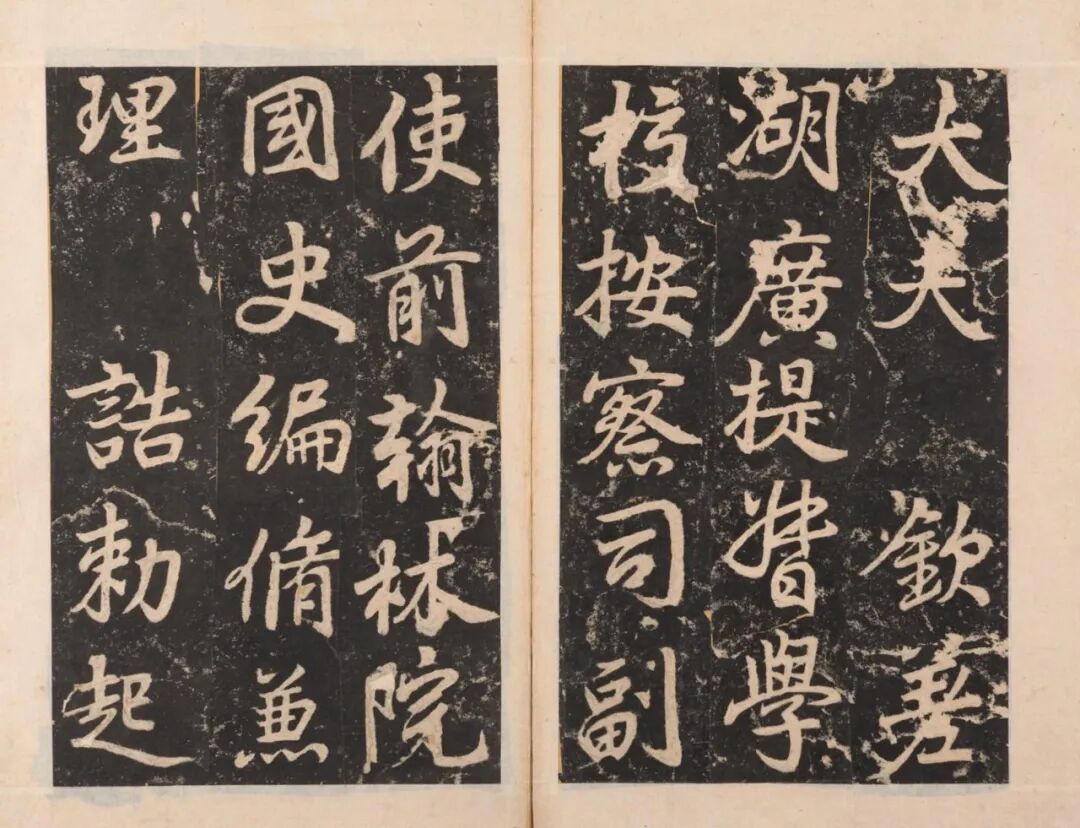 大夫 欽差
湖廣提督學
校按察司副
使前翰林院
國史編脩兼
理 誥勅起